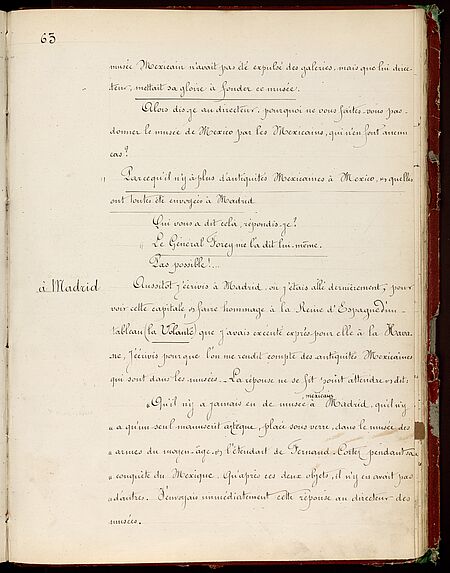 63
musée Mexicain n'avait pas été expulsé des galeries, mais que lui direc-
teur, mettait sa gloire à fonder ce musée.
Alors dis-je au directeur, pourquoi ne vous faites-vous pas
donner le musée de Mexico par les Mexicains, qui n'en font aucun
cas?
Parcequ'il n'y à plus d'antiquités Mexicaines à Mexico, & qu'elles
ont toutes été envoyées à Madrid
Qui vous a dit celà, répondis-je?
Le Général Forey me l'a dit lui-même.
Pas possible!...
à Madrid
Aussitôt j'écrivis à Madrid, ou j'étais allé dernièrement, pour
voir cette capitale, & faire hommage à la Reine d'Espagne d'un
tableau (la Volante) que j'avais exécuté exprès pour elle à la Hava-
ne, j'écrivis pour que l'on me rendit compte des antiquités Mexicaines
qui sont dans les musées. La réponse ne se fit point attendre & dit:
mexicain
"Qu'il n'y a jamais eu de musée à Madrid, qu'il n'y
" a qu'un seul manuscrit aztèque, placé sous verre, dans le musée des
" armes du moyen-âge, & l'étendart de Fernand-Cortez pendant sa
" conquête du Mexique. Qu'après ces deux objets, il n'y en avait pas
" d'autres. J'envoyai immédiatement cette réponse au directeur des
musées.